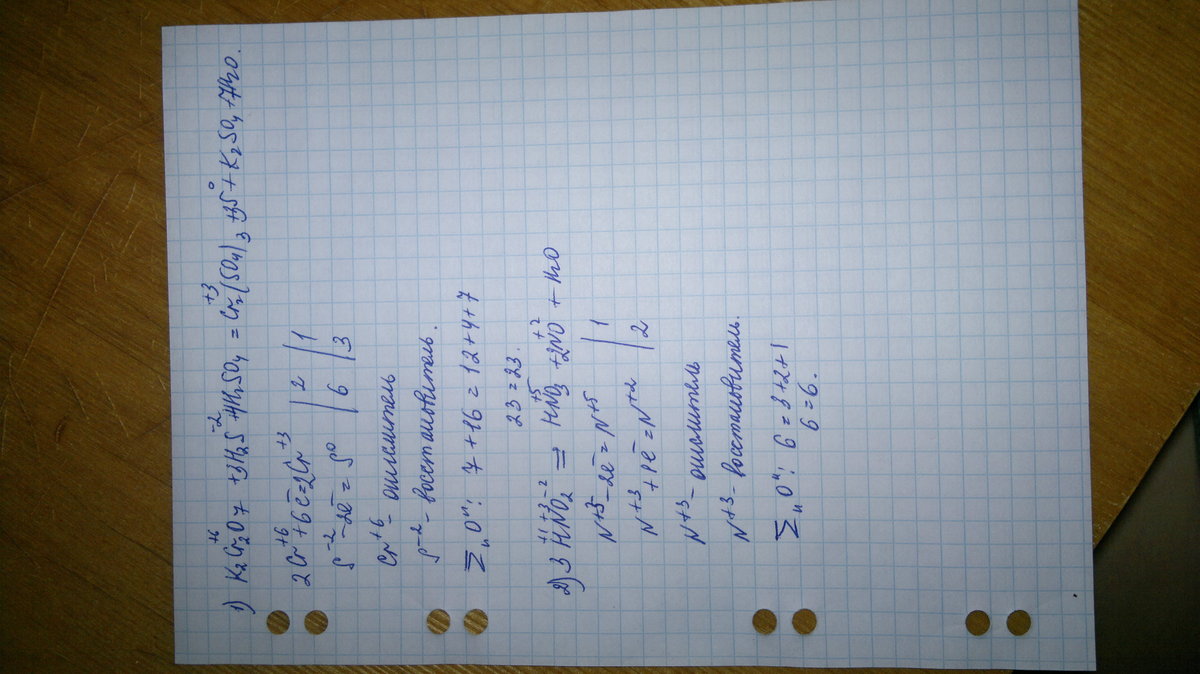 1) K₂Cr₂⁺⁶O₇ + 3H₂S⁻² + 4H₂SO₄ = Cr₂⁺³(SO₄)₃ + 3S⁰ + K₂SO₄ + 7H₂O.
2Cr⁺⁶ + 6ē = 2Cr⁺³ | 2 | 1
S⁻² - 2ē = S⁰ | 6 | 3
Cr⁺⁶ - окислитель
S⁻² - восстановитель.
Σ и "O": 7 + 16 = 12 + 4 + 7
23 = 23.
2) 3H⁺¹N⁺³O₂⁻² = HN⁺⁵O₃ + 2N⁺²O + H₂O
N⁺³ - 2ē = N⁺⁵ | 1
N⁺³ + 1ē = N⁺² | 2
N⁺³ - окислитель
N⁺³ - восстановитель.
Σ и "O": 6 = 3 + 2 + 1
6 = 6.